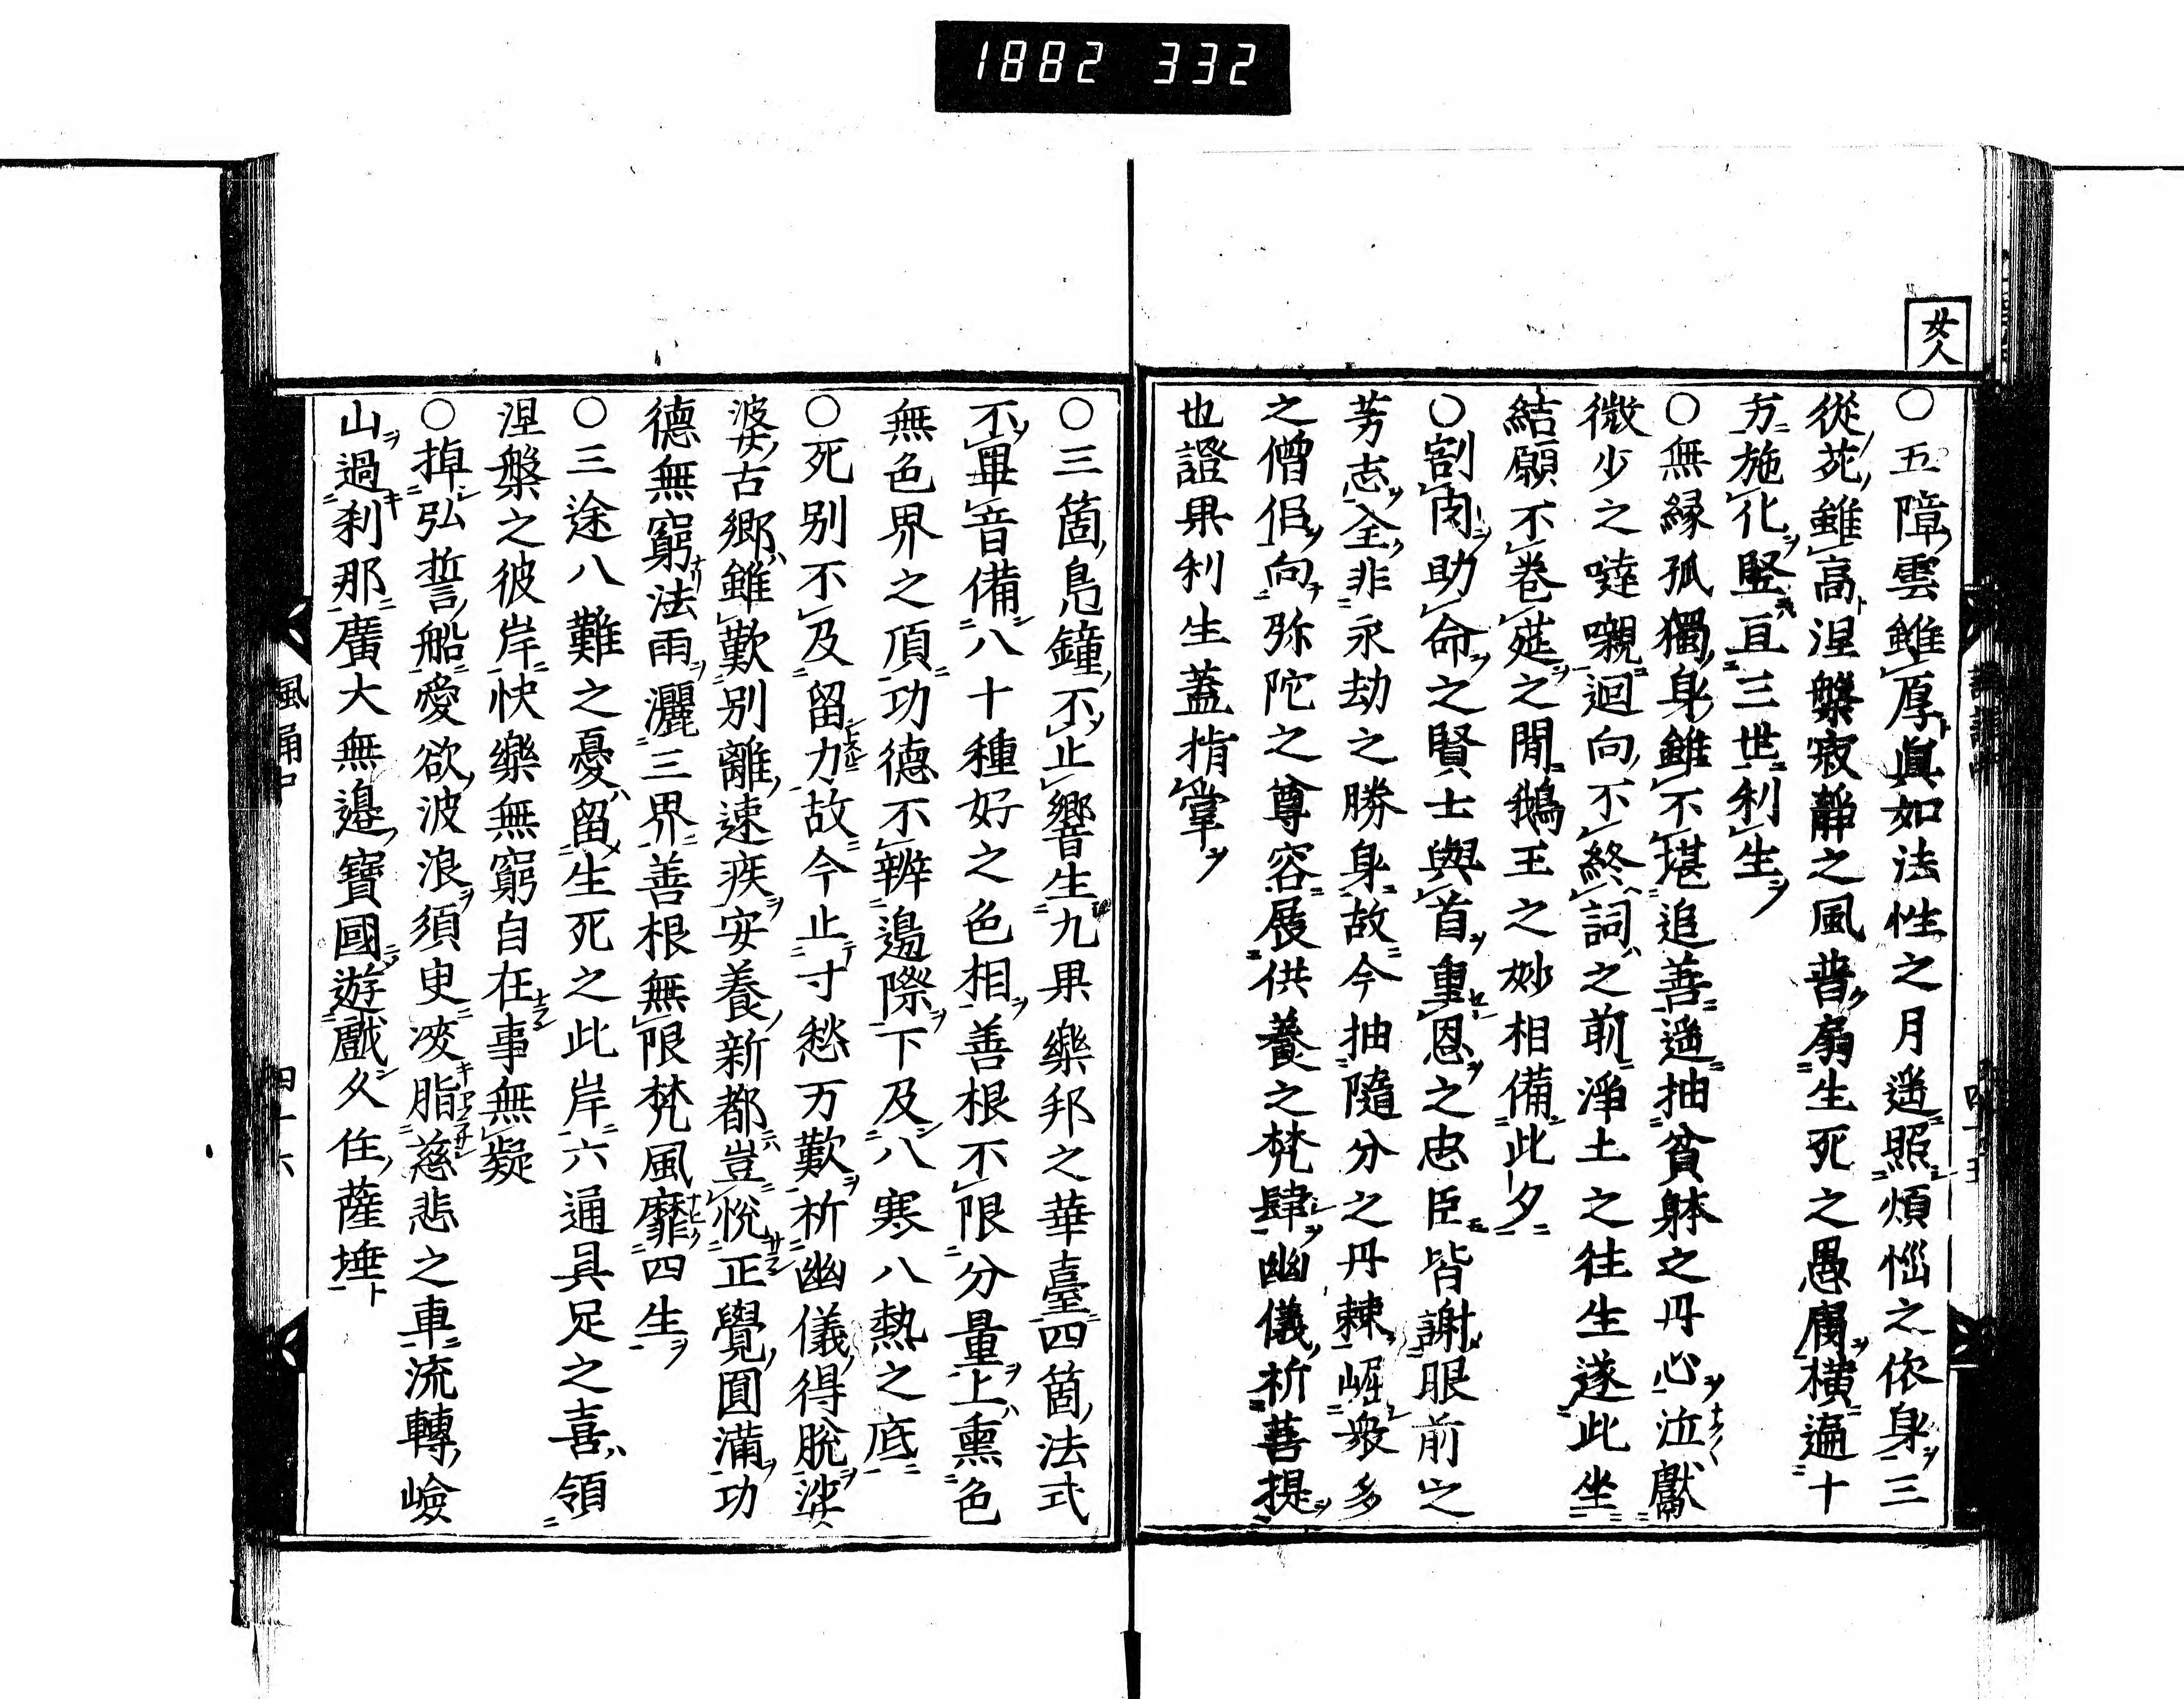 1882 332
女人
〇五障雲雖厚眞如法性之月遙照煩惱之依身三
從苑雖高涅槃寂靜之風普扇生死之愚癡横遍十
方施化竪亘三世利生
〇無縁孤獨身雖不堪追善遙抽貧躰之丹心泣獻
微少之噠嚫迴向不終詞之前淨土之往生遂此坐
結願不巻莚之間鵝王之妙相備此夕
〇割肉助命之賢士與首重恩之忠臣皆謝眼前之
芳志全非永劫之勝身故今抽隨分之丹棘崛衆多
之僧侶向弥陀之尊容展供養之梵肆幽儀祈菩提
也證果利生蓋指掌
〇三箇鳧鐘不止響生九果樂邦之華臺四箇法式
不畢音備八十種好之色相善根不限分量上熏色
無色界之頂功德不辨邊際下及八寒八熱之底
〇死别不及留力故今止寸愁万歎祈幽儀得脱娑
婆古郷雖歎别離速疾安養新都豈悅正覺圓滿功
德無窮法雨灑三界善根無限梵風靡四生
〇三途八難之憂留生死之此岸六通具足之喜領
涅槃之彼岸快樂無窮自在事無疑
〇掉弘誓船愛欲波浪須臾凌脂慈悲之車流轉嶮
山過刹那廣大無邉寶國遊戲久住薩埵
風誦中
四十六